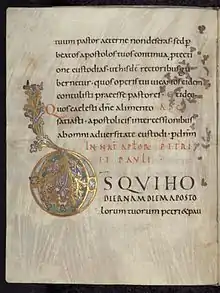 tuum pastor aeterne non deseras. sed p
beatos apostolos tuos continua protecti
one custodias. ut hisdem rectoribus gu
bernetur. quos operis tui uicarios eidem
contulisti praeesse pastores.
Quos caelesti dne alimento
satiasti. apostolicis intercessionibus
ab omni aduersitate custodi. p dnm
IN NAT APLOR PETRI
ET PAULI
DS QVI HO
DIERNAM DIEM APOSTO
lorum tuorum petri & pau